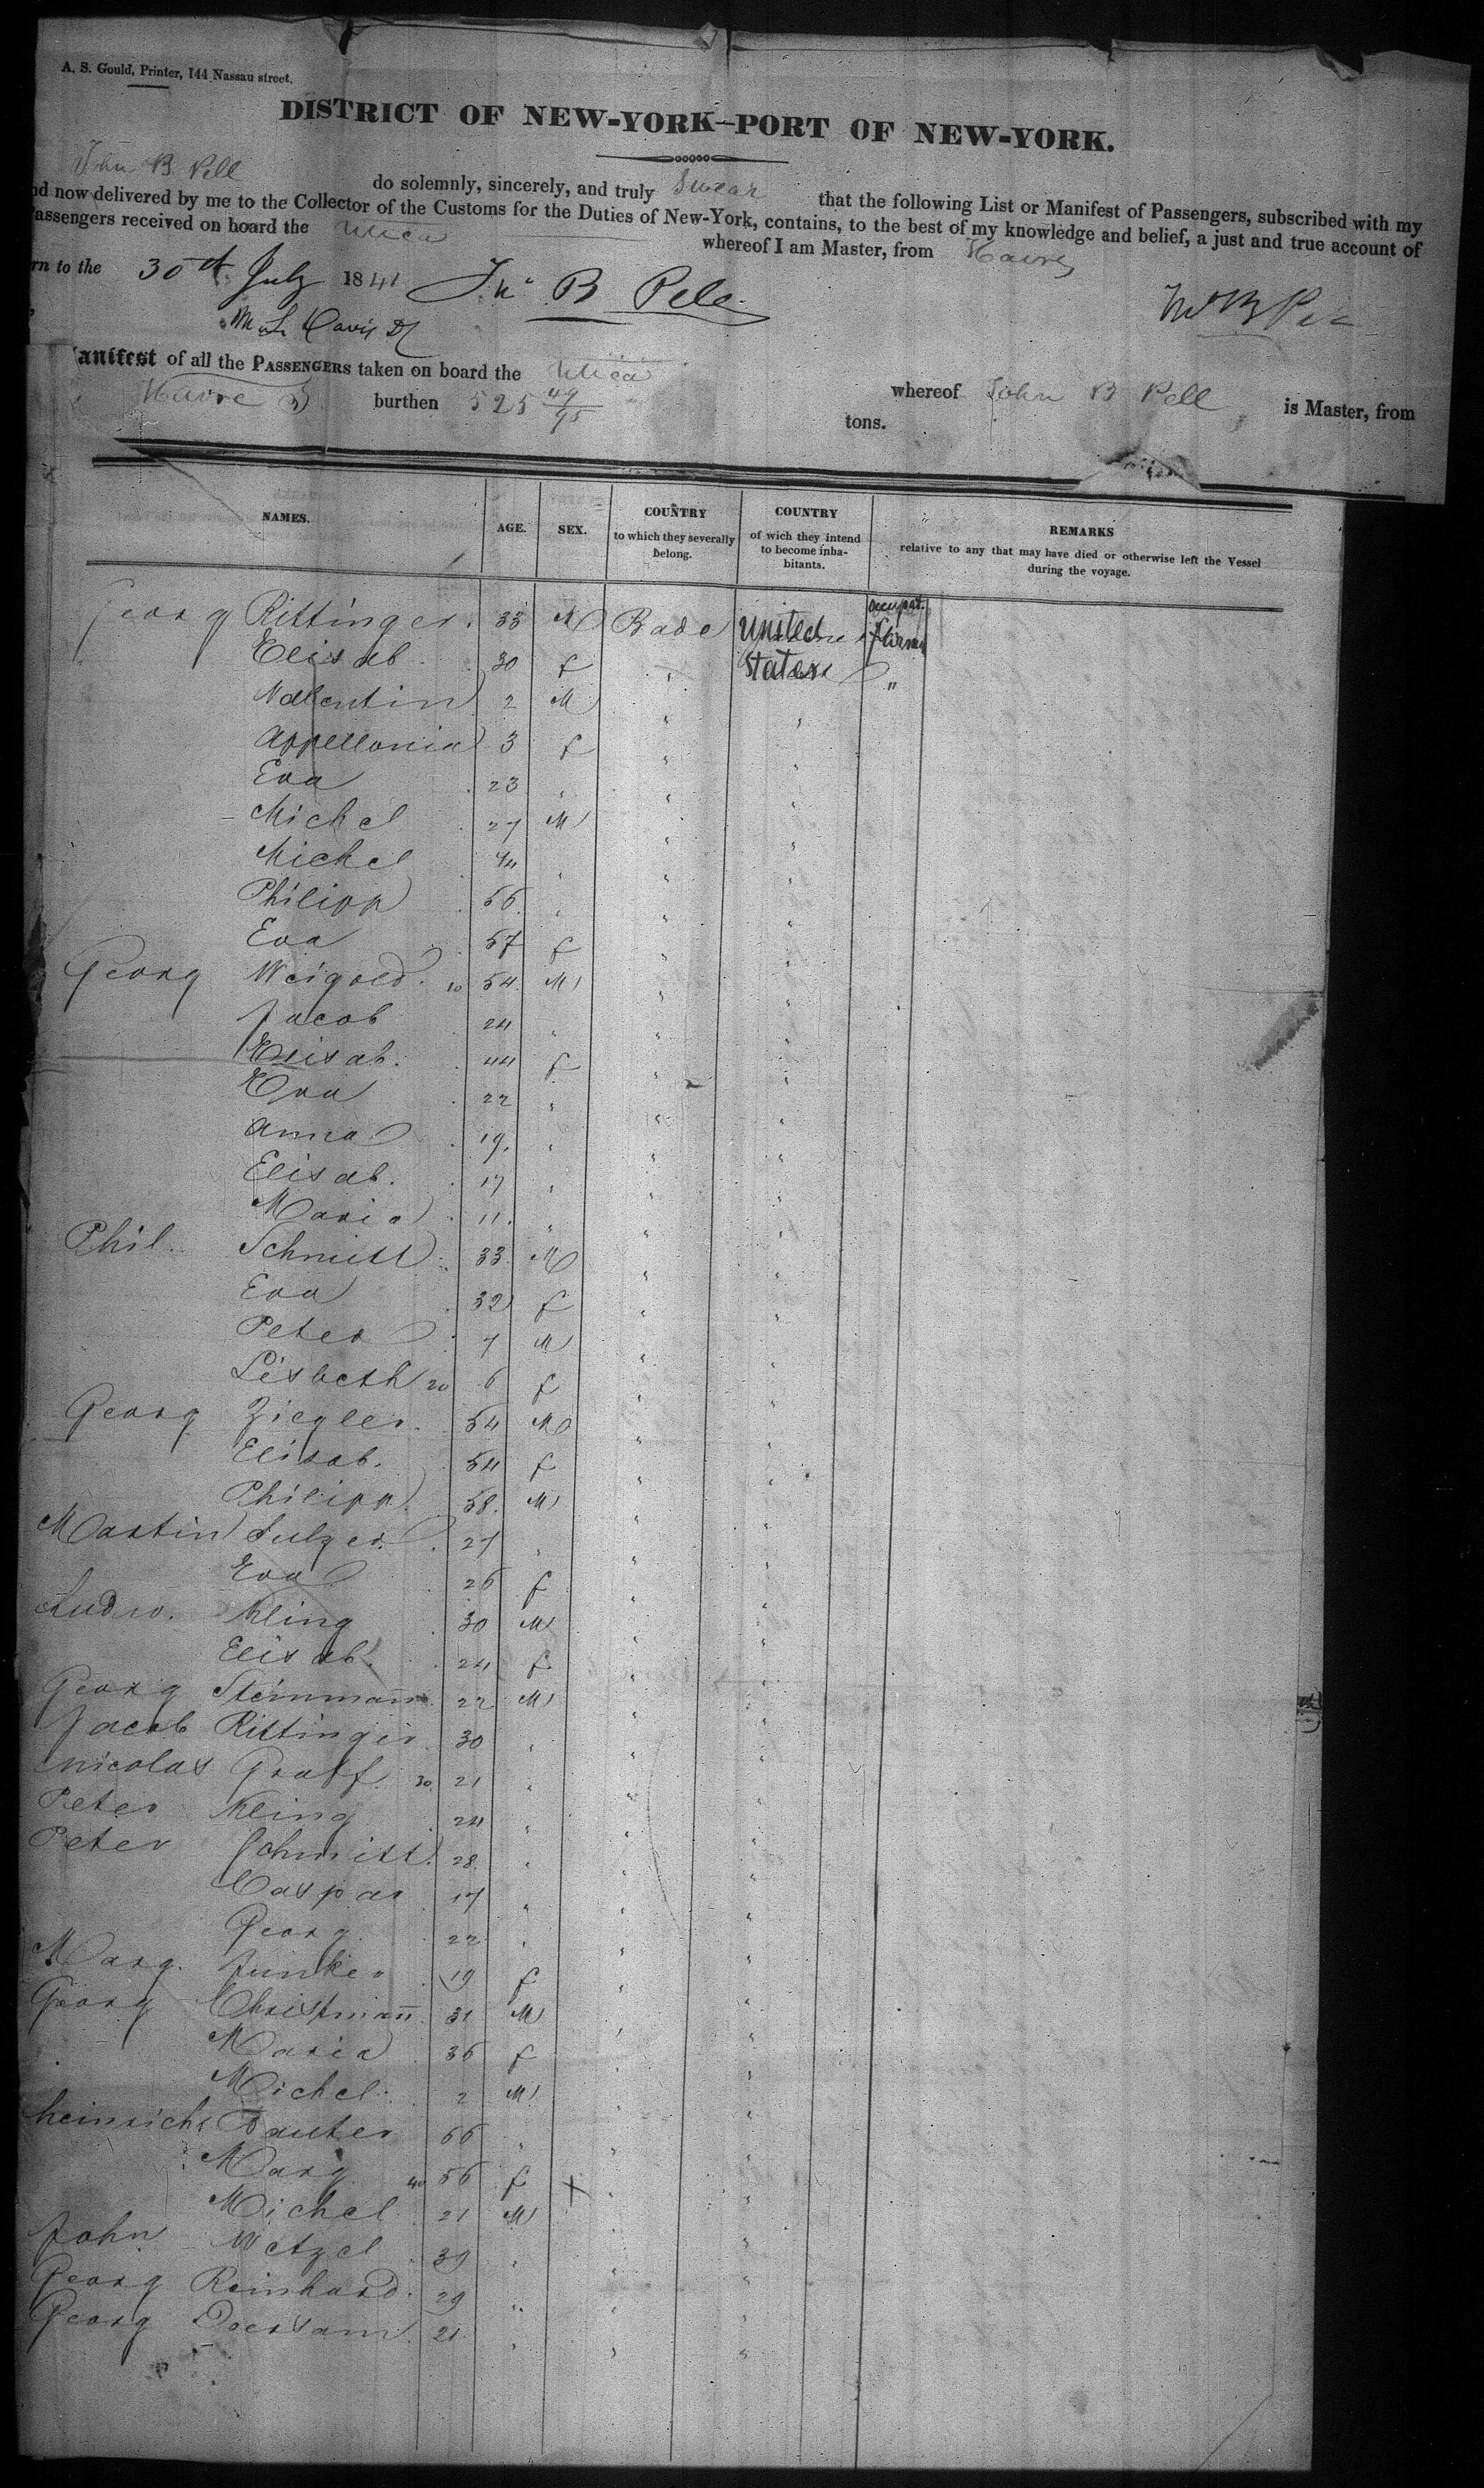 A. S. Gould, Printer, 144 Nassau street.
DISTRICT OF NEW-YORK—PORT OF NEW-YORK.
John B Pell do solemnly, sincerely, and truly Swear that the following List or Manifest of Passengers, subscribed with my
nd now delivered by me to the Collector of the Customs for the Duties of New-York, contains, to the best of my knowledge and belief, a just and true account of
assengers received on board the Utica whereof I am Master, from Havre
rn to the 30th July 1841 Jn° B Pell
Jn° B Pell
anifest of all the PASSENGERS taken on board the Utica whereof John B Pell is Master, from
Havre burthen 525 49/95 tons.
NAMES. AGE. SEX. COUNTRY to which they severally belong. COUNTRY of wich they intend to become inhabitants. REMARKS relative to any that may have died or otherwise left the Vessel during the voyage.
occupat.
Georg Rittinger. 33 M Bade United
Elisab. 30 f " States "
Valentin 2 M " "
Appellonia 3 f " "
Eva 23 " " "
Michel 27 M " "
Michel " " "
Philipp 56 " " "
Eva 57 f " "
Georg Weigold. 10 54 M " "
Jacob 24 " " "
Elisab. 44 f " "
Eva 22 " " "
Anna 19. " " "
Elisab. 17 " " "
Maria 11. " " "
Phil. Schmitt 33 M " "
Eva 32 f " "
Peter 7 M " "
Lisbeth 20 6 f " "
Georg Ziegler. 54 M " "
Elisab. 54 f " "
Philipp 58. M " "
Martin Sulzer. 27 " " "
Eva 26 f " "
Ludw. Kling 30 M " "
Elisab. 24 f " "
Georg Steinmann. 22 M " "
Jacob Rittinger 30 " " "
Nicolas Graff. 30 21 " " "
Peter Kling 24 " " "
Peter Schmitt. 28. " " "
Caspar 17 " " "
Georg 22 " " "
Marg. Junker 19 f " "
Georg Christmann 31 M " "
Maria 36 f " "
Michel 2 M " "
Heinrich Sauter 66 " " "
Marg. 40 56 f X " "
Michel 21 M " "
John Wetzel 39 " " "
Georg Reinhard. 29 " " "
Georg Doersam 21 " " "